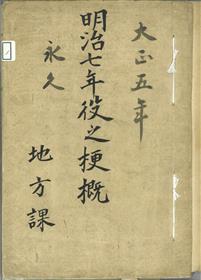 大正五年
明治七年役之梗概
永久
地方課